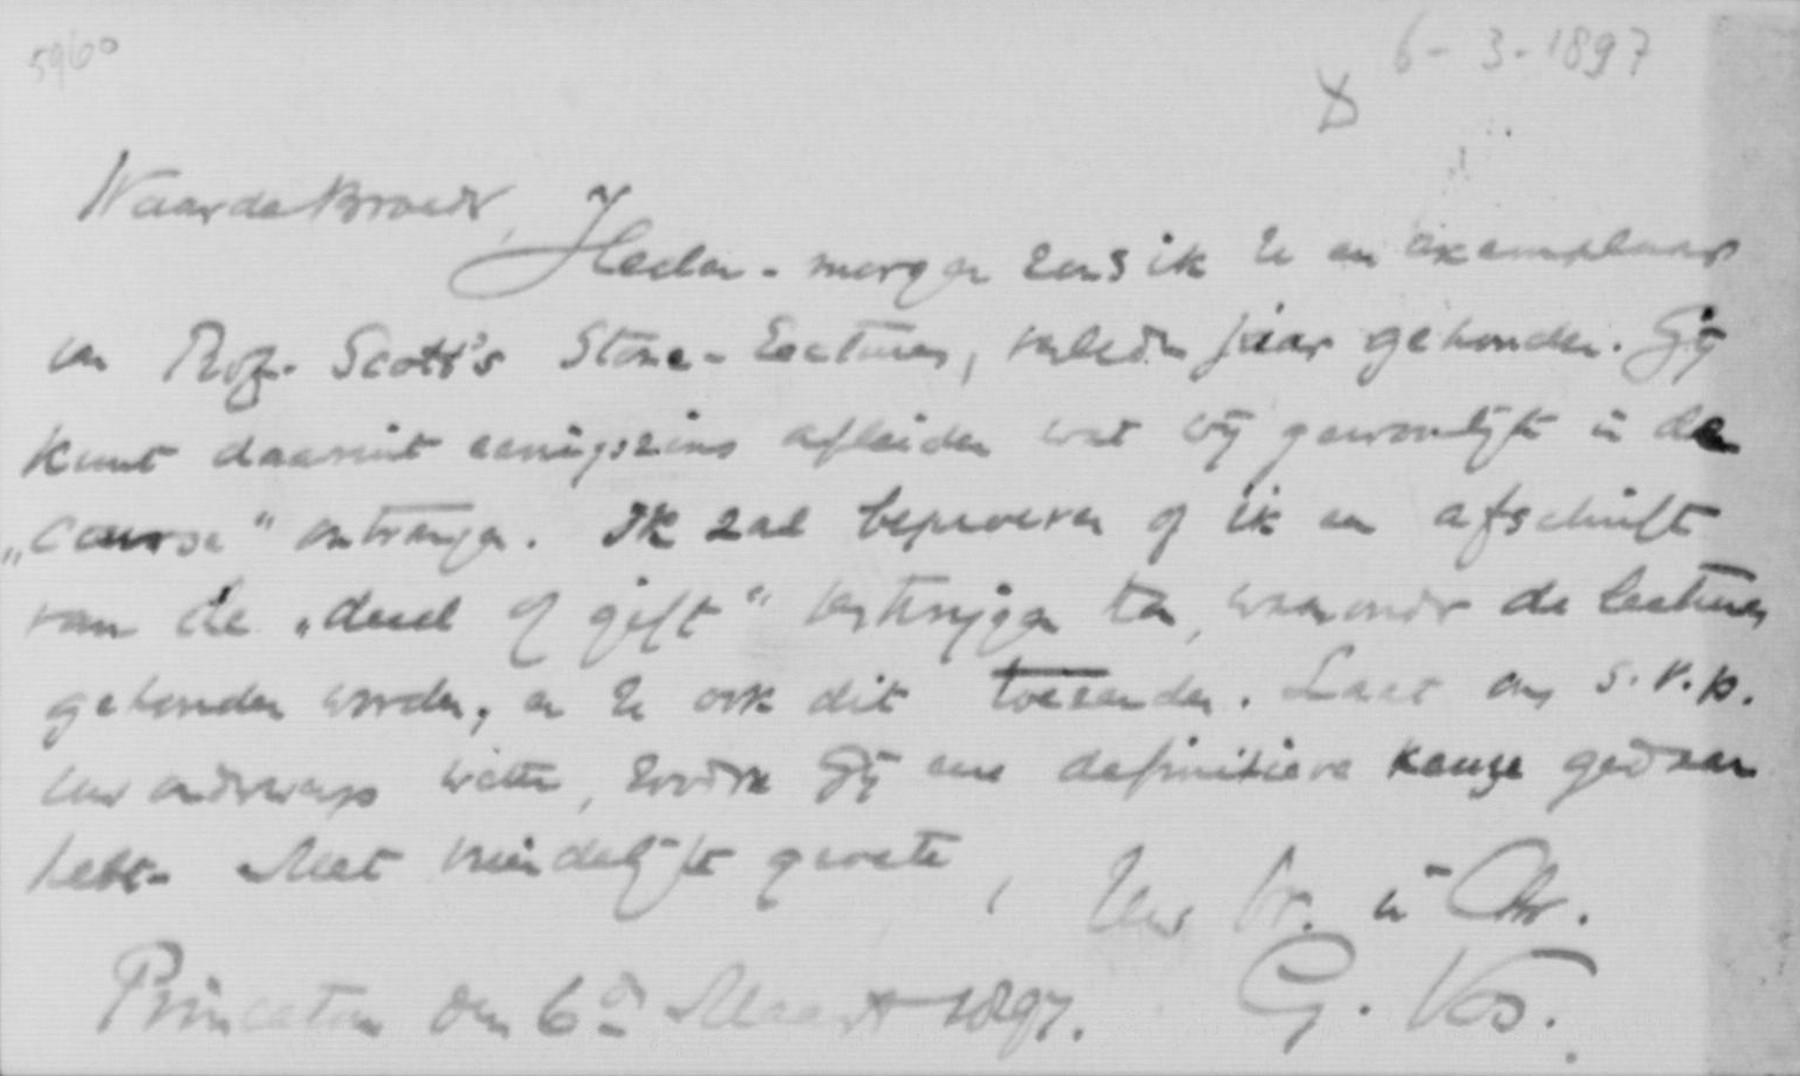 5960
6-3-1897
Waarde Broeder,
Heden-morgen zend ik U een exemplaar
van Prof. Scott's Stone-Lectures, verleden jaar gehouden. Gij
kunt daaruit eenigszins afleiden wat wij gewoonlijk in den
„course“ ontvangen. Ik zal beproeven of ik een afschrift
van de „deed of gift“ verkrijgen kan, waaronder de lectures
gehouden worden, en U ook dit toezenden. Laat ons s.v.p.
uw onderwerp weten, zoodra Gij eene definitieve keuze gedaan
hebt. Met vriendelijke groete, Uw br. in Chr.
Princeton den 6den Maart 1897. G. Vos.